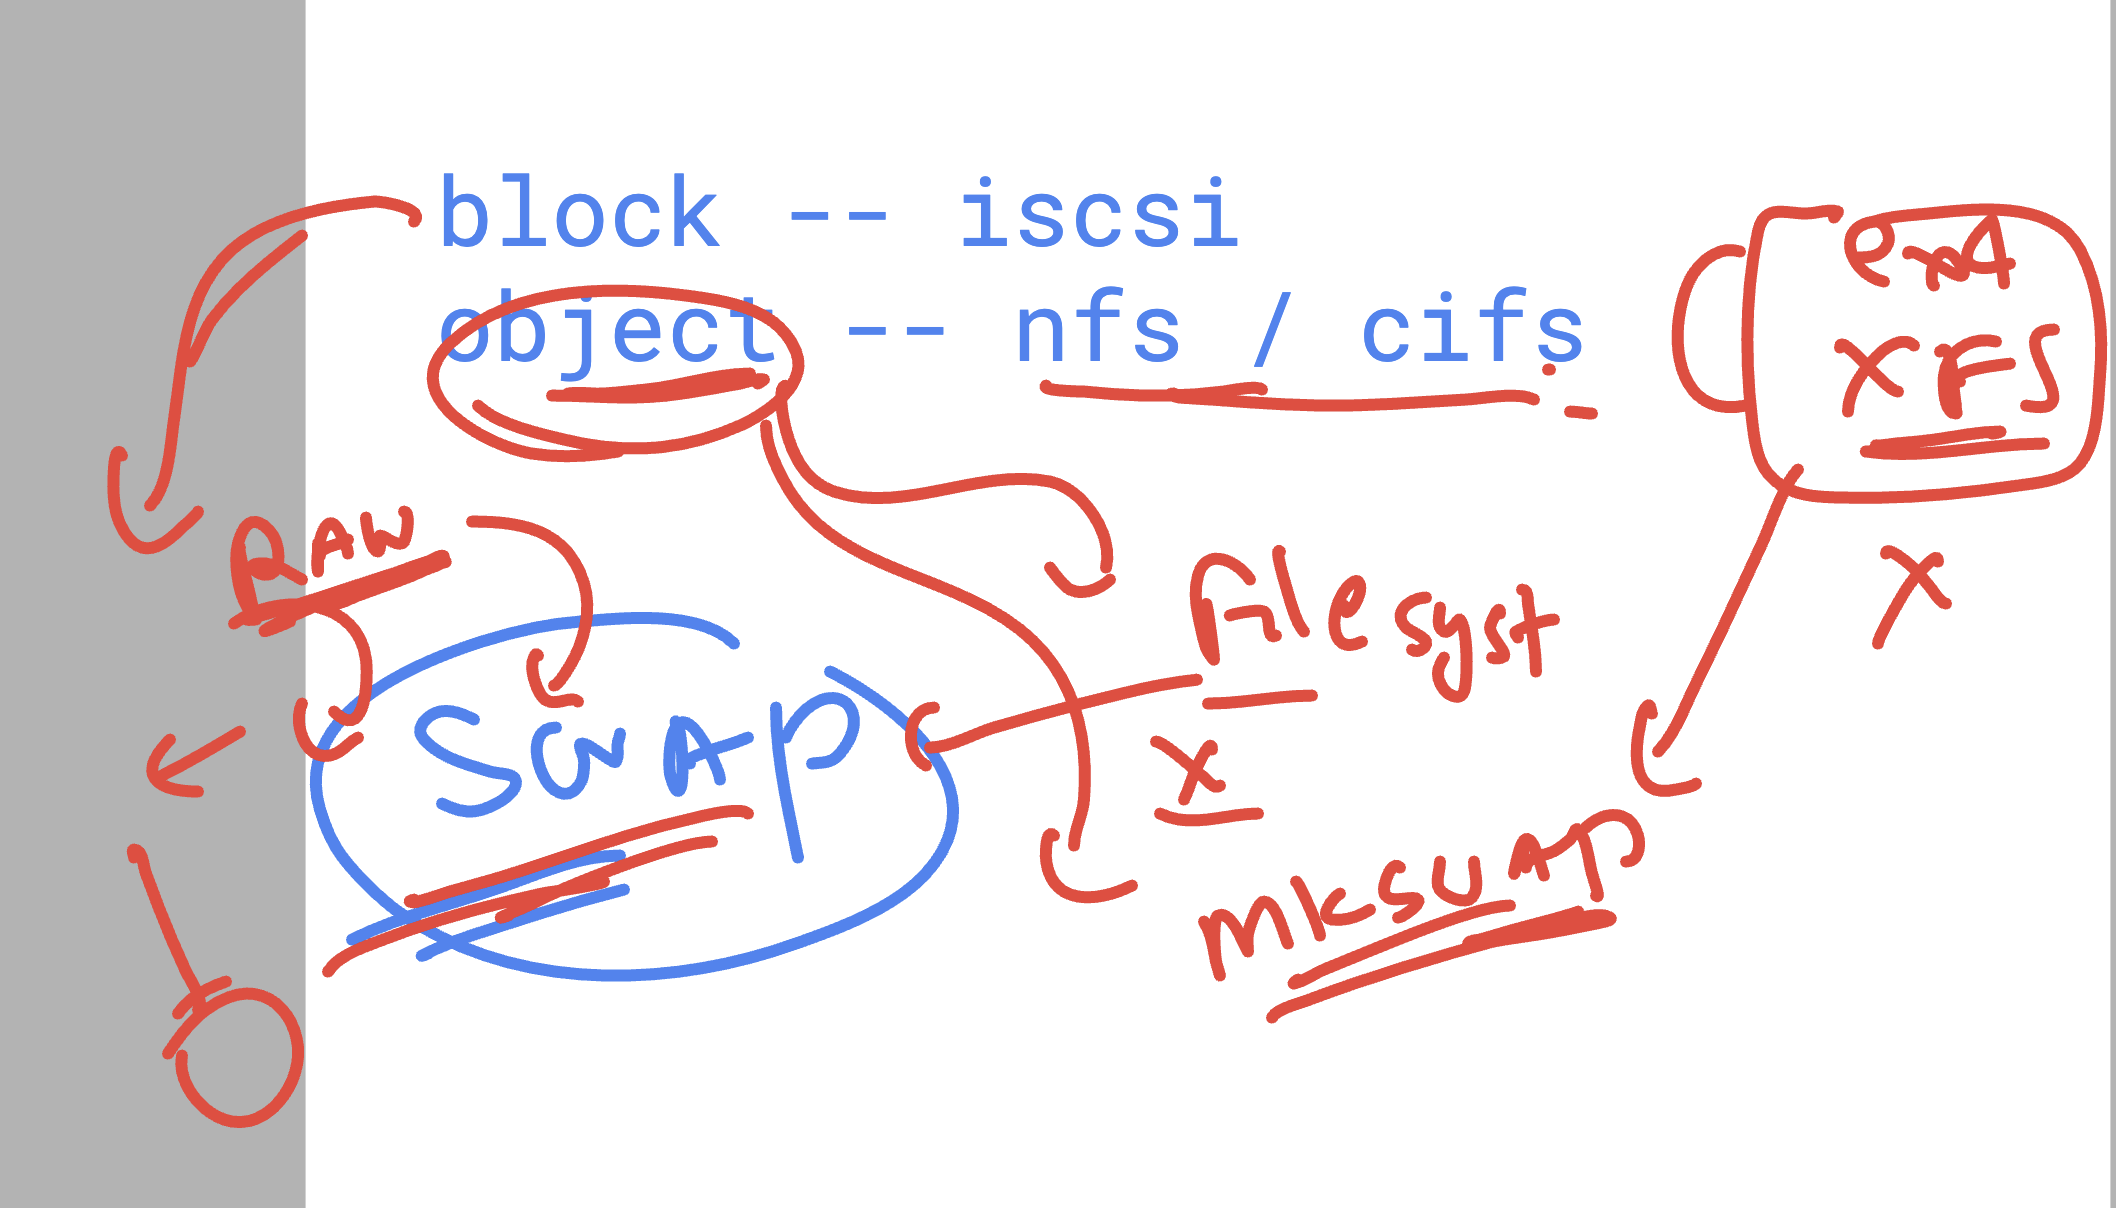 block -- iscsi
object -- nfs / cifs
ext4
XFS
RAW
Filesyst
X
SWAP
X
mkswap